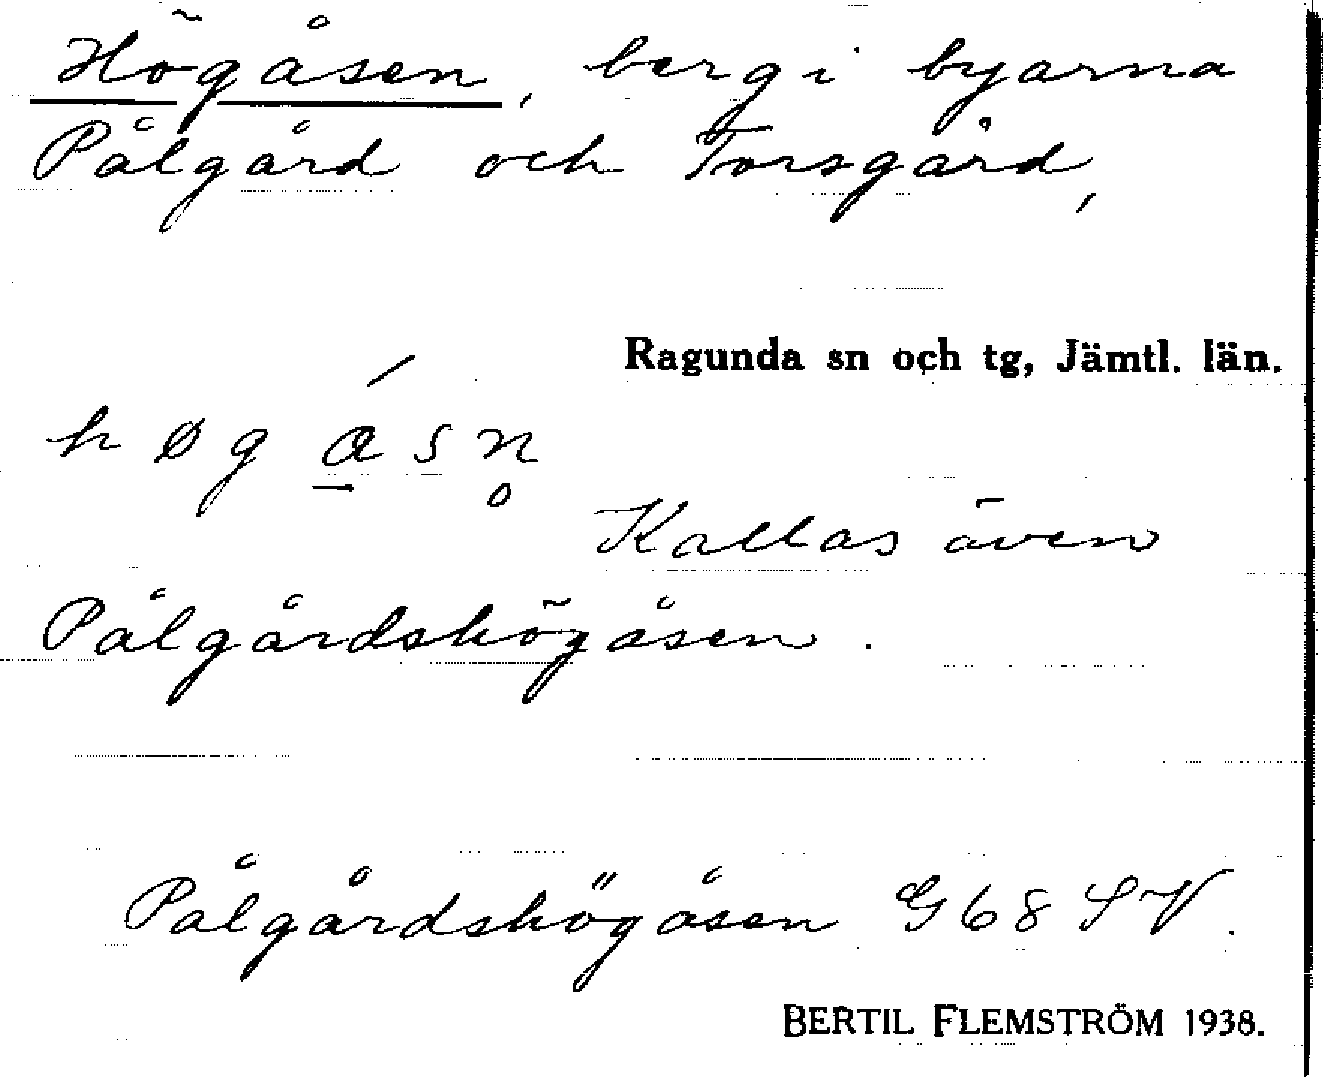 Högåsen, berg i byarna
Pålgård och Torsgård,
Ragunda sn och tg, Jämtl. län.
høgá̱sn̥
Kallas även
Pålgårdshögåsen.
Pålgårdshögåsen G68 SV.
BERTIL FLEMSTRÖM 1938.